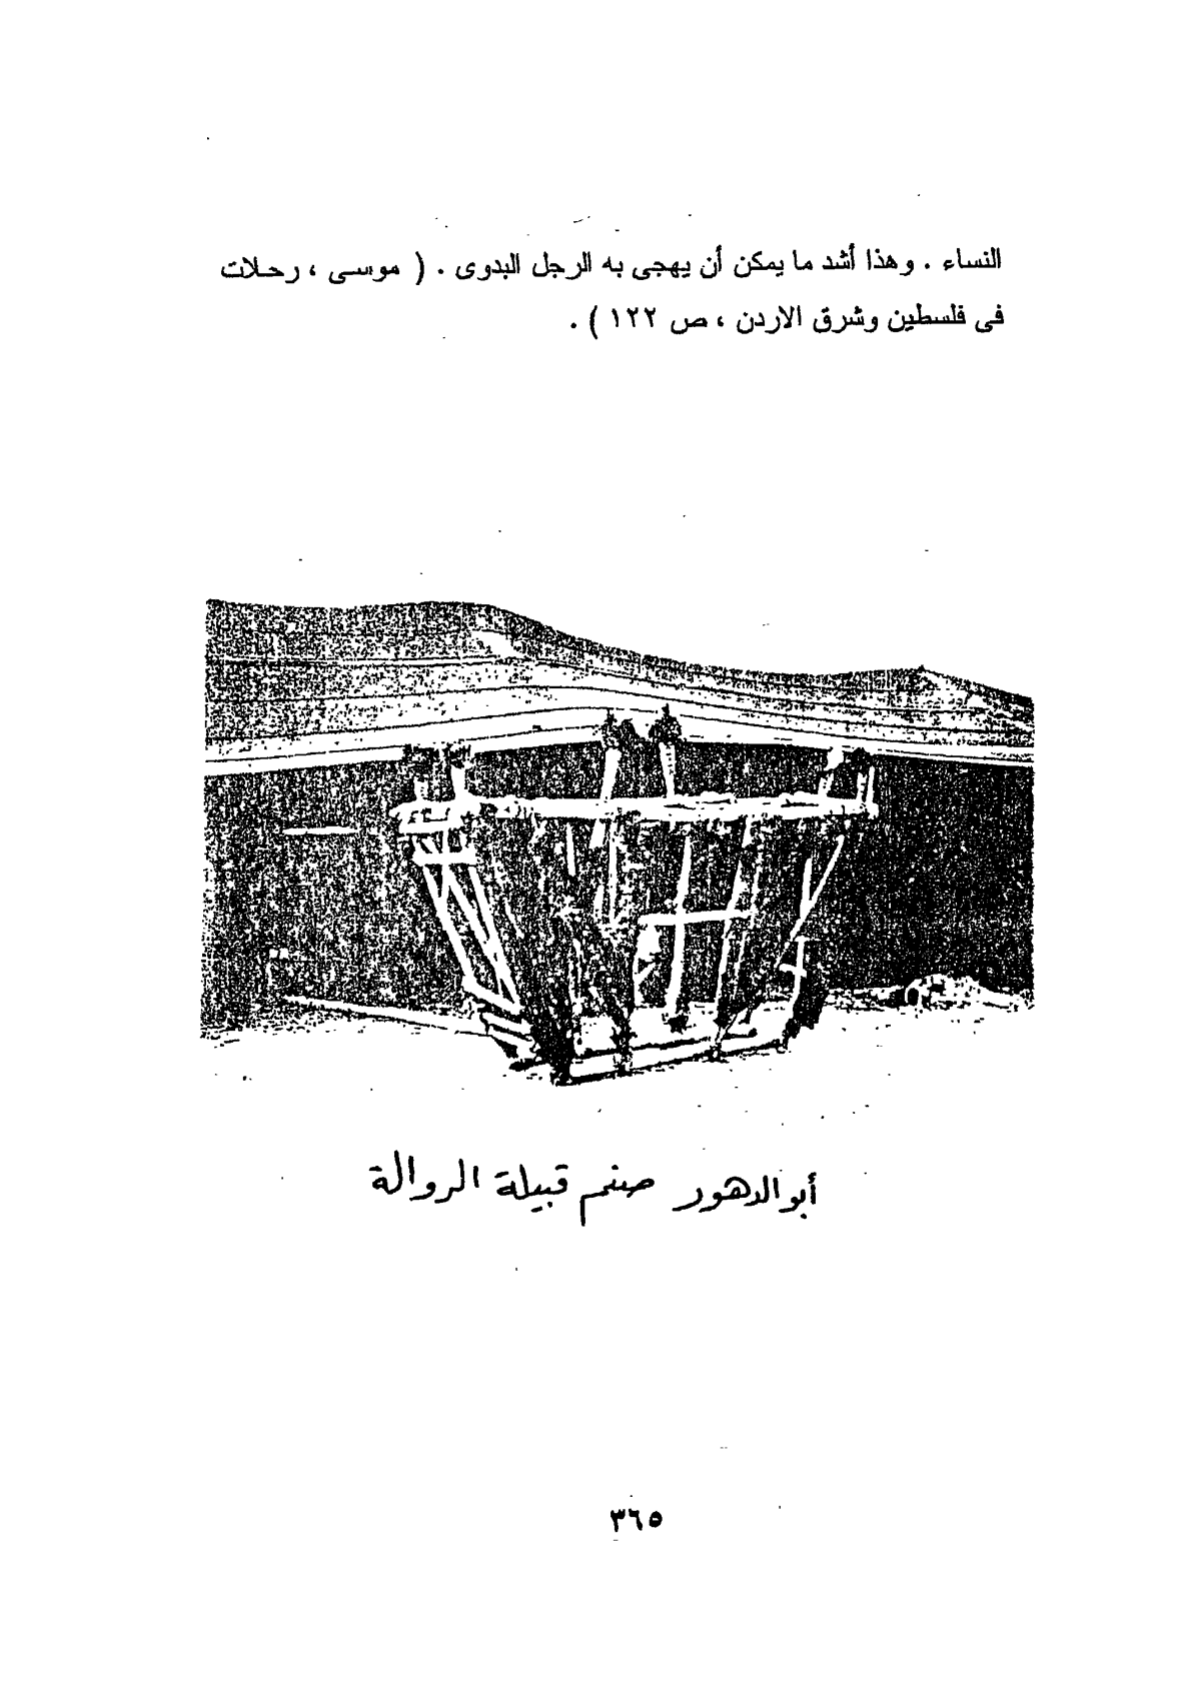 النساء . وهذا أشد ما يمكن أن يهجى به الرجل البدوى . ( موسى ، رحلات
فى فلسطين وشرق الاردن ، ص ١٢٢ ) .
أبو الدهور صنم قبيلة الروالة
٣٦٥